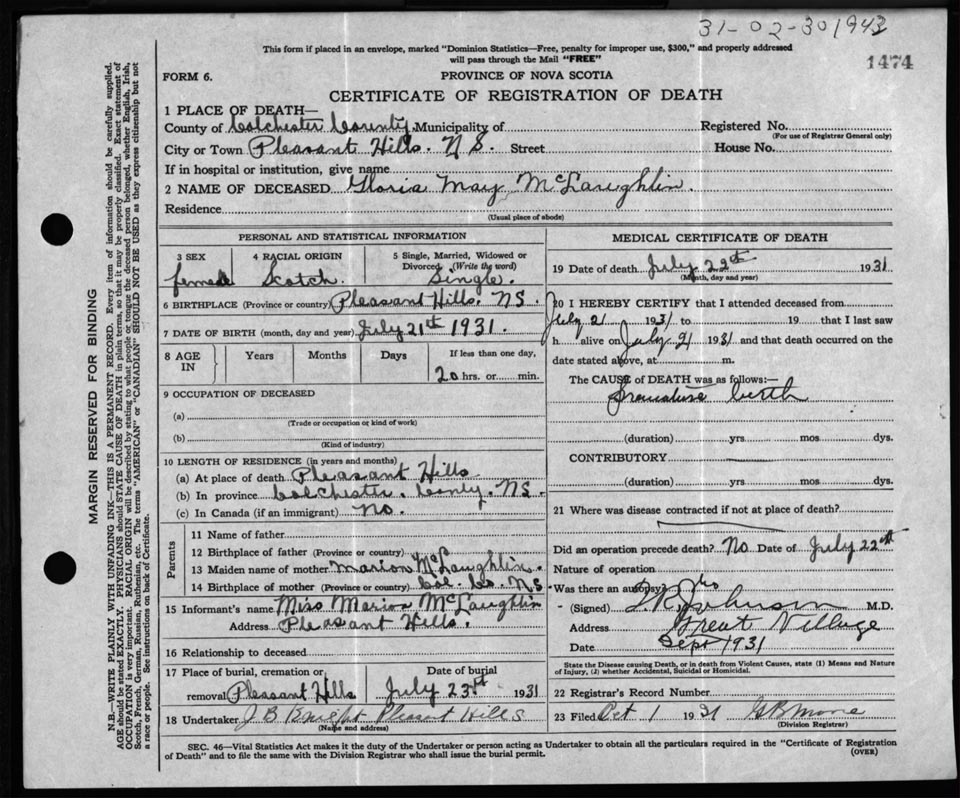 31-02-301943
1474
This form if placed in an envelope, marked "Dominion Statistics—Free, penalty for improper use, $300," and properly addressed
will pass through the Mail "FREE"
FORM 6. PROVINCE OF NOVA SCOTIA
CERTIFICATE OF REGISTRATION OF DEATH
1 PLACE OF DEATH—
County of Colchester County Municipality of Registered No.
(For use of Registrar General only)
City or Town Pleasant Hills. N S. Street House No.
If in hospital or institution, give name
2 NAME OF DECEASED Gloria May McLaughlin.
Residence
(Usual place of abode)
PERSONAL AND STATISTICAL INFORMATION
3 SEX 4 RACIAL ORIGIN 5 Single, Married, Widowed or
Divorced (Write the word)
female Scotch. Single.
6 BIRTHPLACE (Province or country) Pleasant Hills. NS.
7 DATE OF BIRTH (month, day and year) July 21th 1931.
8 AGE IN Years Months Days If less than one day,
20 hrs. or min.
9 OCCUPATION OF DECEASED
(a)
(Trade or occupation or kind of work)
(b)
(Kind of industry)
10 LENGTH OF RESIDENCE (in years and months)
(a) At place of death Pleasant Hills
(b) In province Colchester. Conty. NS.
(c) In Canada (if an immigrant) No.
Parents
11 Name of father
12 Birthplace of father (Province or country)
13 Maiden name of mother Marion McLaughlin.
14 Birthplace of mother (Province or country) Col. Co. NS
15 Informant's name Miss Marion McLaughlin
Address Pleasant Hills.
16 Relationship to deceased
17 Place of burial, cremation or Date of burial
removal Pleasant Hills July 23st 1931
18 Undertaker J B Pleasant Hills
(Name and address)
MEDICAL CERTIFICATE OF DEATH
19 Date of death July 22th 1931
(Month, day and year)
20 I HEREBY CERTIFY that I attended deceased from
July 21 1931 to 19 that I last saw
h alive on July 21 1931 and that death occurred on the
date stated above, at m.
The CAUSE of DEATH was as follows:—
Premature birth
(duration) yrs mos dys.
CONTRIBUTORY
(duration) yrs mos dys.
21 Where was disease contracted if not at place of death?
Did an operation precede death? No Date of July 22th
Nature of operation
Was there an autopsy? No
(Signed) Johnson M.D.
Address Great Village
Date Sept 1931
State the Disease causing Death, or in death from Violent Causes, state (1) Means and Nature
of Injury, (2) whether Accidental, Suicidal or Homicidal.
22 Registrar's Record Number
23 Filed Oct 1 1931
(Division Registrar)
SEC. 46—Vital Statistics Act makes it the duty of the Undertaker or person acting as Undertaker to obtain all the particulars required in the "Certificate of Registration
of Death" and to file the same with the Division Registrar who shall issue the burial permit. (OVER)
MARGIN RESERVED FOR BINDING
N.B.—WRITE PLAINLY WITH UNFADING INK—THIS IS A PERMANENT RECORD. Every item of information should be carefully supplied.
AGE should be stated EXACTLY. PHYSICIANS should STATE CAUSE OF DEATH in plain terms, so that it may be properly classified. Exact statement of
OCCUPATION is very important. RACIAL ORIGIN will be described by stating to what people or tongue the deceased person belonged, whether English, Irish,
Scotch, French, German, Russian, Ruthenian, etc. The terms "AMERICAN" or "CANADIAN" SHOULD NOT BE USED as they express citizenship but not
a race or people. See instructions on back of Certificate.